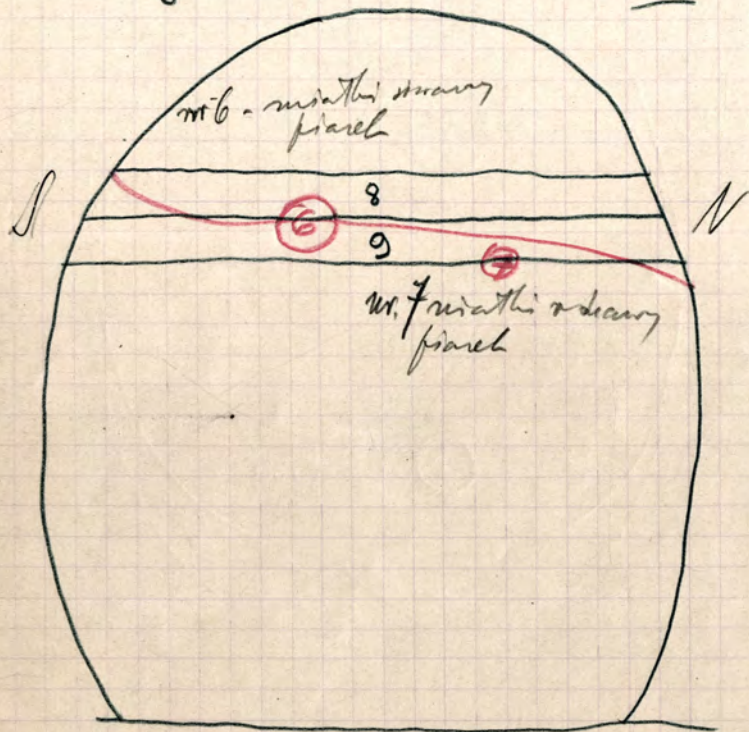 nr 6 - miałki szarawy
piasek
8
S
6
N
9
7
nr. 7 miałki rdzawy
piasek